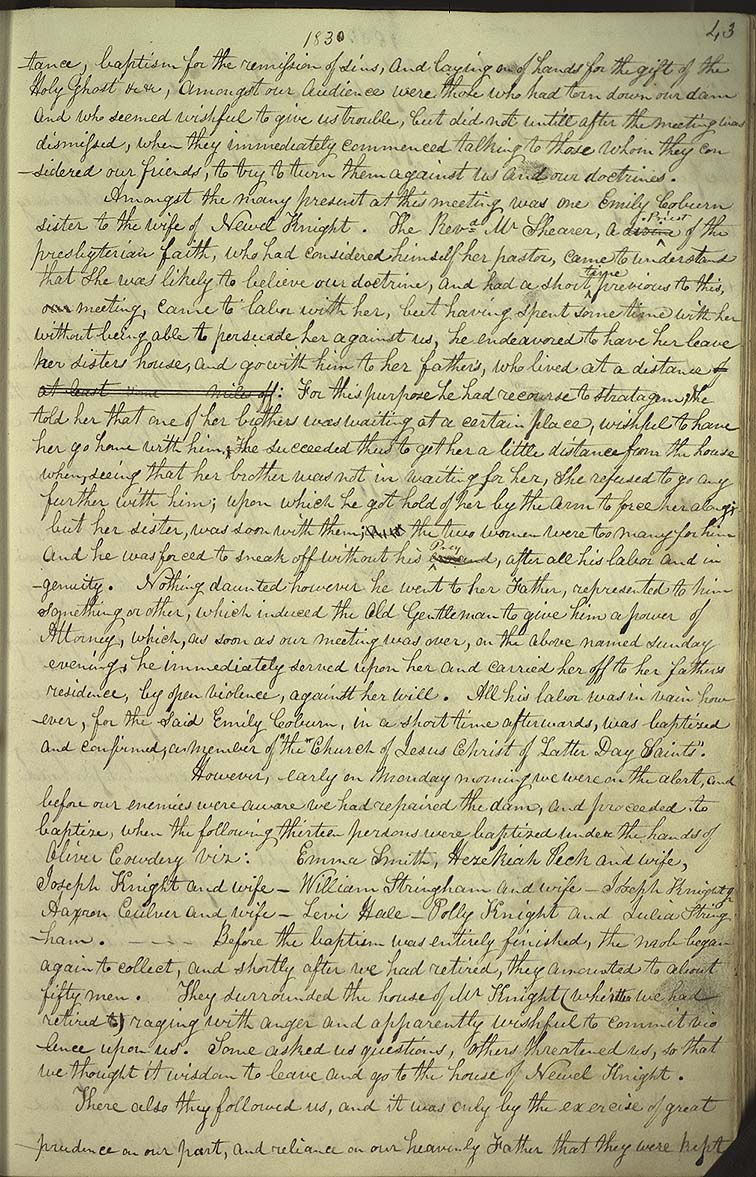 1830
43
tance, baptism for the remission of sins, and laying on of hands for the gift of the
Holy Ghost &c &c, Amongst our audience were those who had torn down our dam
and who seemed wishful to give us trouble, but did not untill after the meeting was
dismissed, when they immediately commenced talking to those whom they con
-sidered our friends, to try to turn them against us and our doctrines.
Amongst the many present at this meeting was one Emily Coburn
sister to the wife of Newel Knight. The Revd. Mr Shearer, a divine Priest of the
presbyterian faith, who had considered himself her pastor, came to understand
that she was likely to believe our doctrine, and had a short time previous to this,
our meeting, came to labor with her, but having spent some time with her
without being able to persuade her against us, he endeavored to have her leave
her sisters house, and go with him to her fathers, who lived at a distance of
at least miles off: For this purpose he had recourse to stratagem, he
told her that one of her brothers was waiting at a certain place, wishful to have
her go home with him, he succeeded thus to get her a little distance from the house
when, seeing that her brother was not in waiting for her, she refused to go any
further with him; upon which he got hold of her by the arm to force her along;
but her sister, was soon with them; the two women were too many for him
and he was forced to sneak off without his errand Prey, after all his labor and in
-genuity. Nothing daunted however he went to her Father, represented to him
something or other, which induced the Old Gentleman to give him a power of
Attorney, which, as soon as our meeting was over, on the above named sunday
evening, he immediately served upon her and carried her off to her father's
residence, by open violence, against her will. All his labor was in vain how
-ever, for the said Emily Coburn, in a short time afterwards, was baptized
and confirmed, a member of "the "Church of Jesus Christ of Latter Day Saints".
However, early on Monday morning we were on the alert, and
before our enemies were aware we had repaired the dam, and proceeded to
baptize, when the following thirteen persons were baptized under the hands of
Oliver Cowdery viz: Emma Smith, Hezekiah Peck and wife,
Joseph Knight and wife – William Stringham and wife – Joseph Knight jr
Aaron Culver and wife – Levi Hale – Polly Knight and Julia String
-ham. – – – – Before the baptism was entirely finished, the mob began
again to collect, and shortly after we had retired, they amounted to about
fifty men. They surrounded the house of Mr Knight (whither we had
retired to) raging with anger and apparently wishful to commit vio
-lence upon us. Some asked us questions, others threatened us, so that
we thought it wisdom to leave and go to the house of Newel Knight.
There also they followed us, and it was only by the exercise of great
prudence on our part, and reliance on our heavenly Father that they were kept